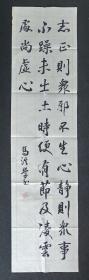 志正則眾邪不生心靜則眾事
不躁未出土時便有節及凌雲
處尚虛心